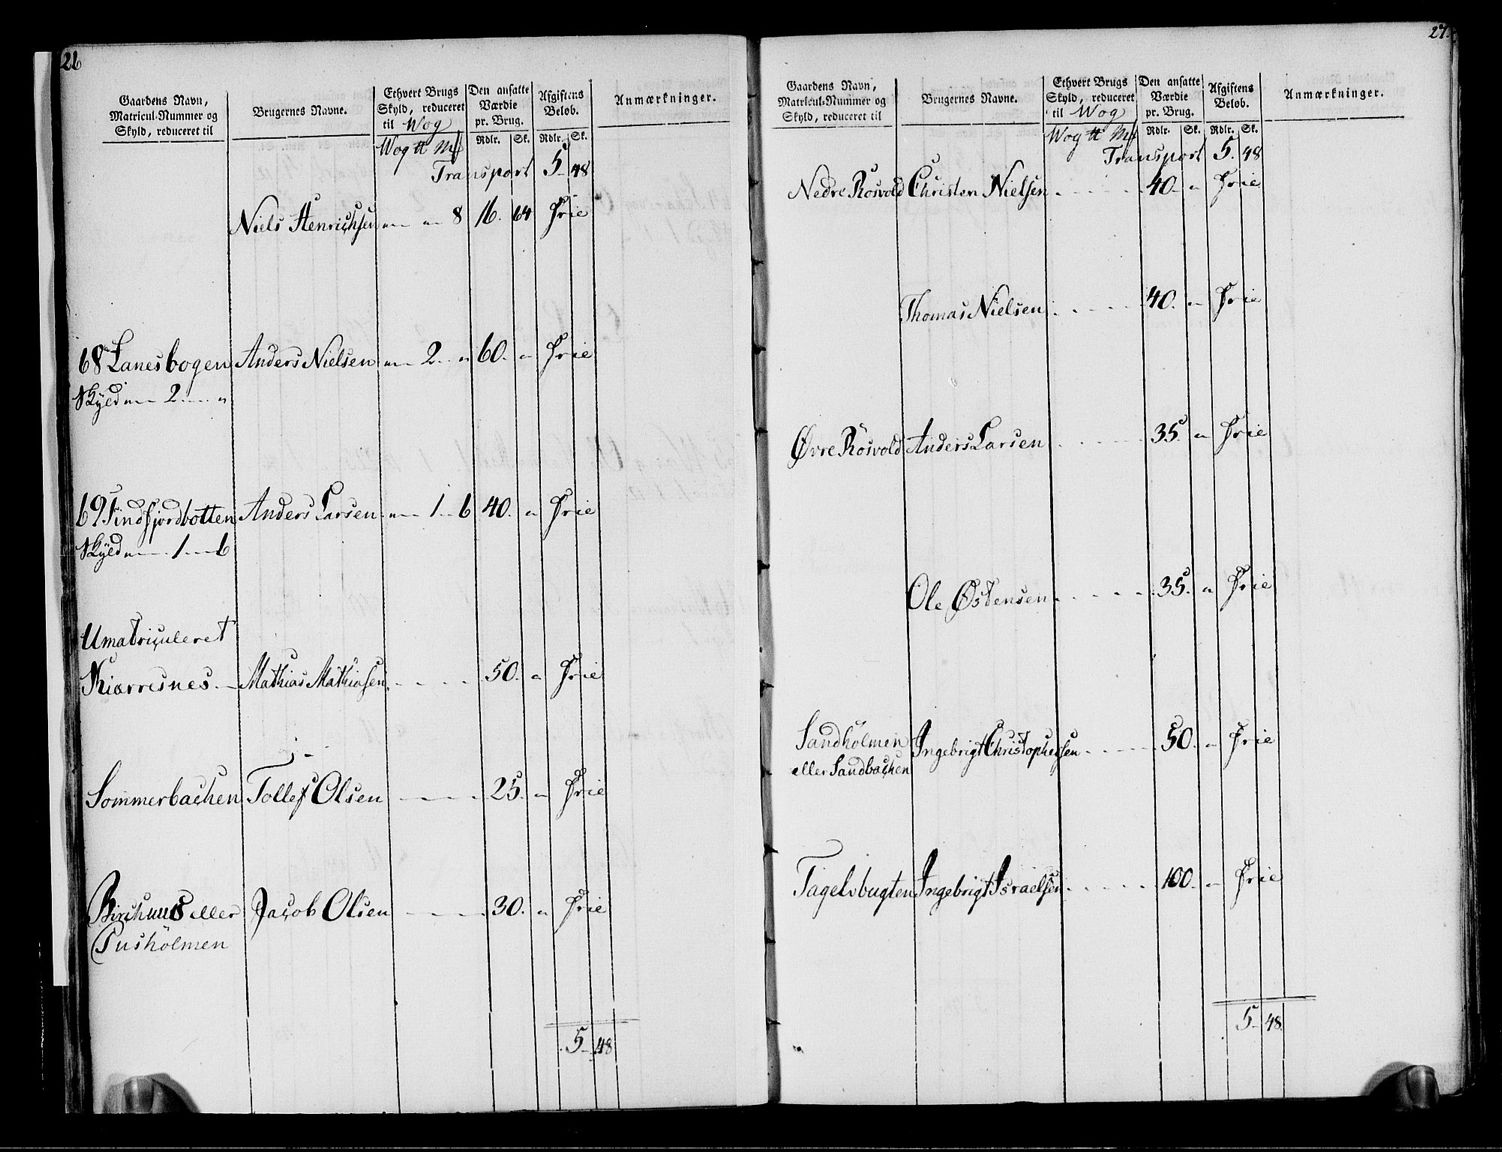 26
Gaardens Navn, Matricul-Nummer og Skyld, reduceret til
Brugernes Navne.
Ethvert Brugs Skyld, reduceret til Wog
Den ansatte Værdie pr. Brug.
Afgiftens Beløb.
Anmærkninger.
Wog ℔ Mk
Rdlr. Sk. Rdlr. Sk.
Transport 5 48
Niels Henrichsen „ „ 8 16. 64 Frie
68 Lanesbogen Anders Nielsen „ 2 „ 60. „ Frie
Skyld „ 2 „
69 Findfjordbotten Anders Larsen „ 1 6 40. „ Frie
Skyld „ 1 6
Umatriculeret
Kiærresnes Mathias Mathiasen 50. „ Frie
Sommerbachen Tollef Olsen 25. „ Frie
Birchnæs eller Jacob Olsen 30. „ Frie
Pusholmen
5 48
27.
Gaardens Navn, Matricul-Nummer og Skyld, reduceret til
Brugernes Navne.
Ethvert Brugs Skyld, reduceret til Wog
Den ansatte Værdie pr. Brug.
Afgiftens Beløb.
Anmærkninger.
Wog ℔ Mk
Rdlr. Sk. Rdlr. Sk.
Transport 5. 48
Nedre Rosvold Christen Nielsen 40 „ Frie
Thomas Nielsen 40. „ Frie
Øvre Rosvold Anders Larsen 35 „ Frie
Ole Østensen 35. „ Frie
Sandholmen Ingebrigt Christophersen 50. „ Frie
eller Sandbachen
Tagelvbugten Ingebrigt Israelsen 100. „ Frie
5 48